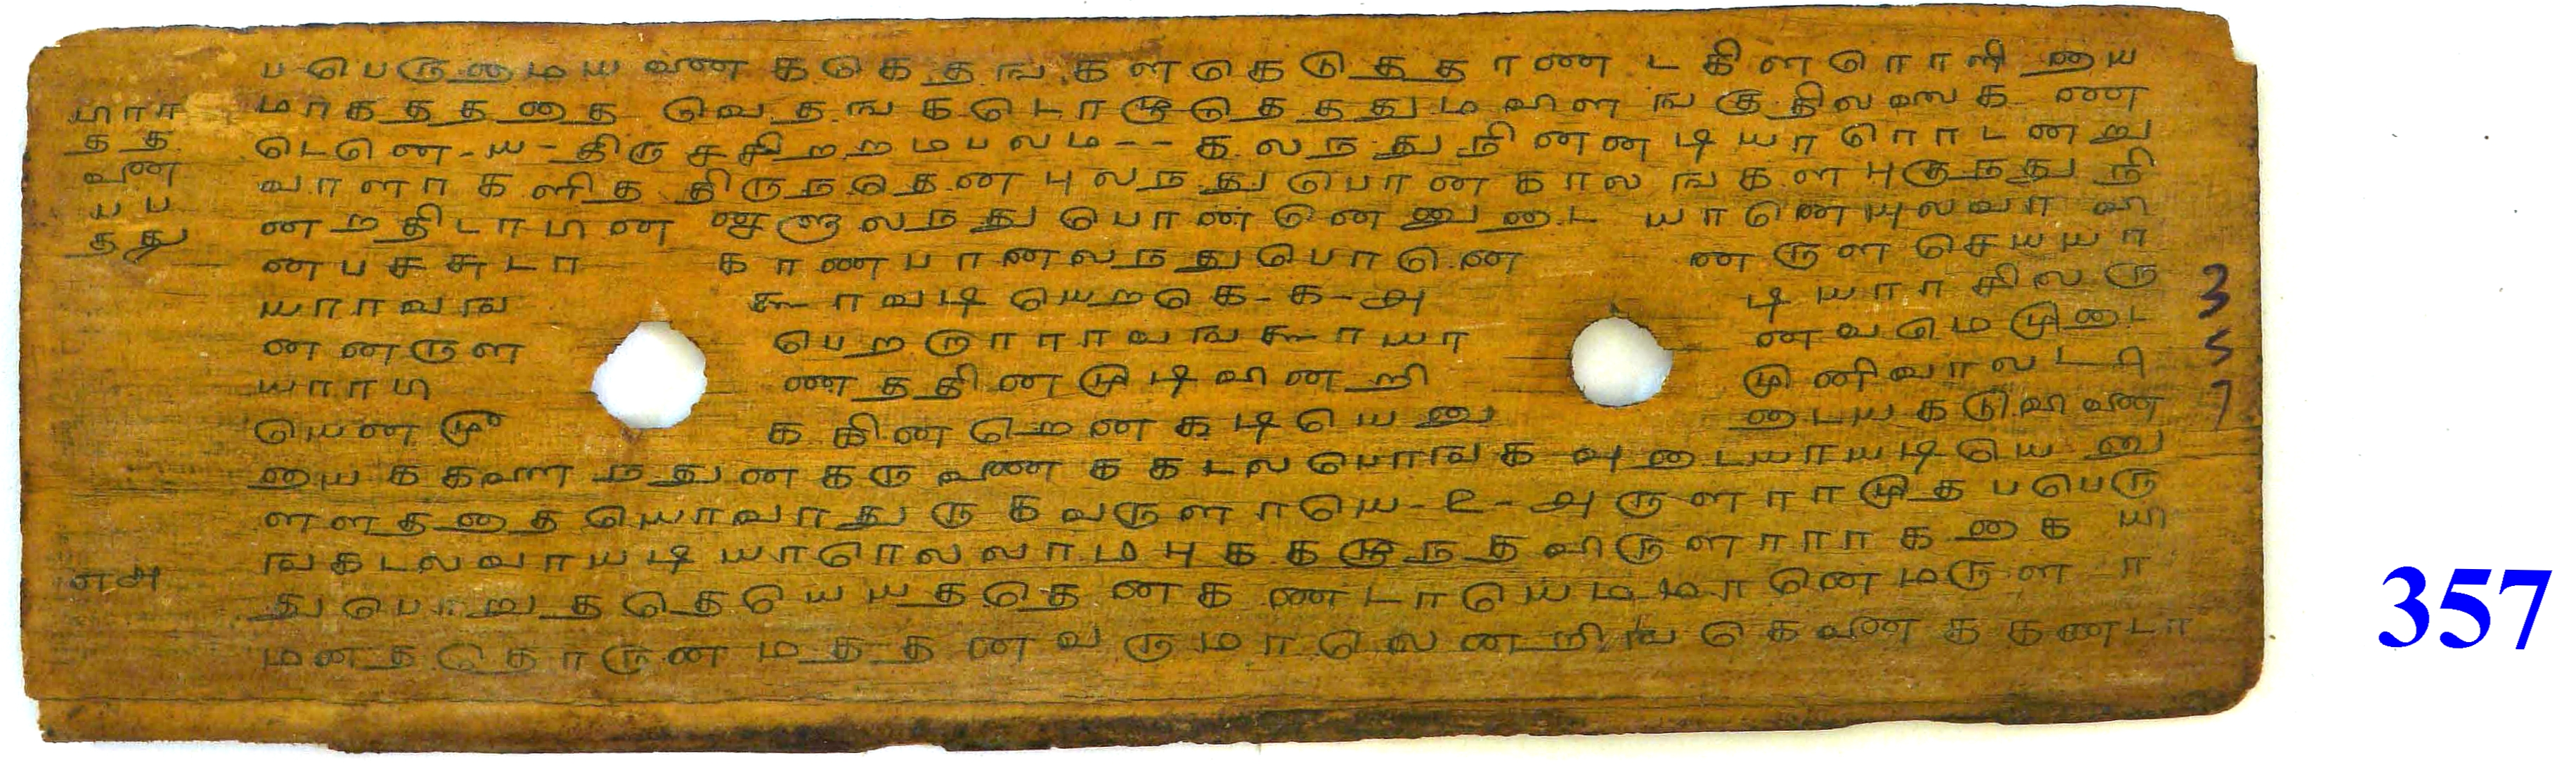 பபெருமையவண கடுகெதஙகளகெடுததாண டகிளரொளியைய
மாகதததைத வெதஙகடொழுதெததுமவிளஙகுதிலலைக ண
டெனெ-ய-திருசசிறறமபலம-- கலநதுநினனடியாரொடனறு
வாளாகளிததிருநதெனபுலநதுபொனகாலஙகளபுகுநதுநி
னறதிடாபின னாளுலநதுபொனெனெனுடை யானெயுலவாவி
னபசசுடா காணபானலநதுபொனென னருளசெயயா
யாரவஙகூரவடியெறகெ-க-அடியாரசிலரு
னனருளபெறறாராரவஙகூரயானவமெமுடை
யாரபிணததினமுடிவினறிமுனிவாலடி
யெனமூககினறெனகடியெனுடையகடுவிணை
யைககளைநதுனகருணைககடலபொஙகவுடையாயடியெனு
ளளததெயொவாதுருகவருளாயெ-உ-அருளாரமுதபபெரு
ஙகடலவாயடியாரெலலாமபுககழுநதவிருளாராககையி
துபொறுததெயெயததெனகணடாயெமமானெமருளா
மனததொருனமததனவருமாலெனறிஙகெனைககணடா
பாரா
தத
வண
யப
தது
எஅ
3
5
7
357